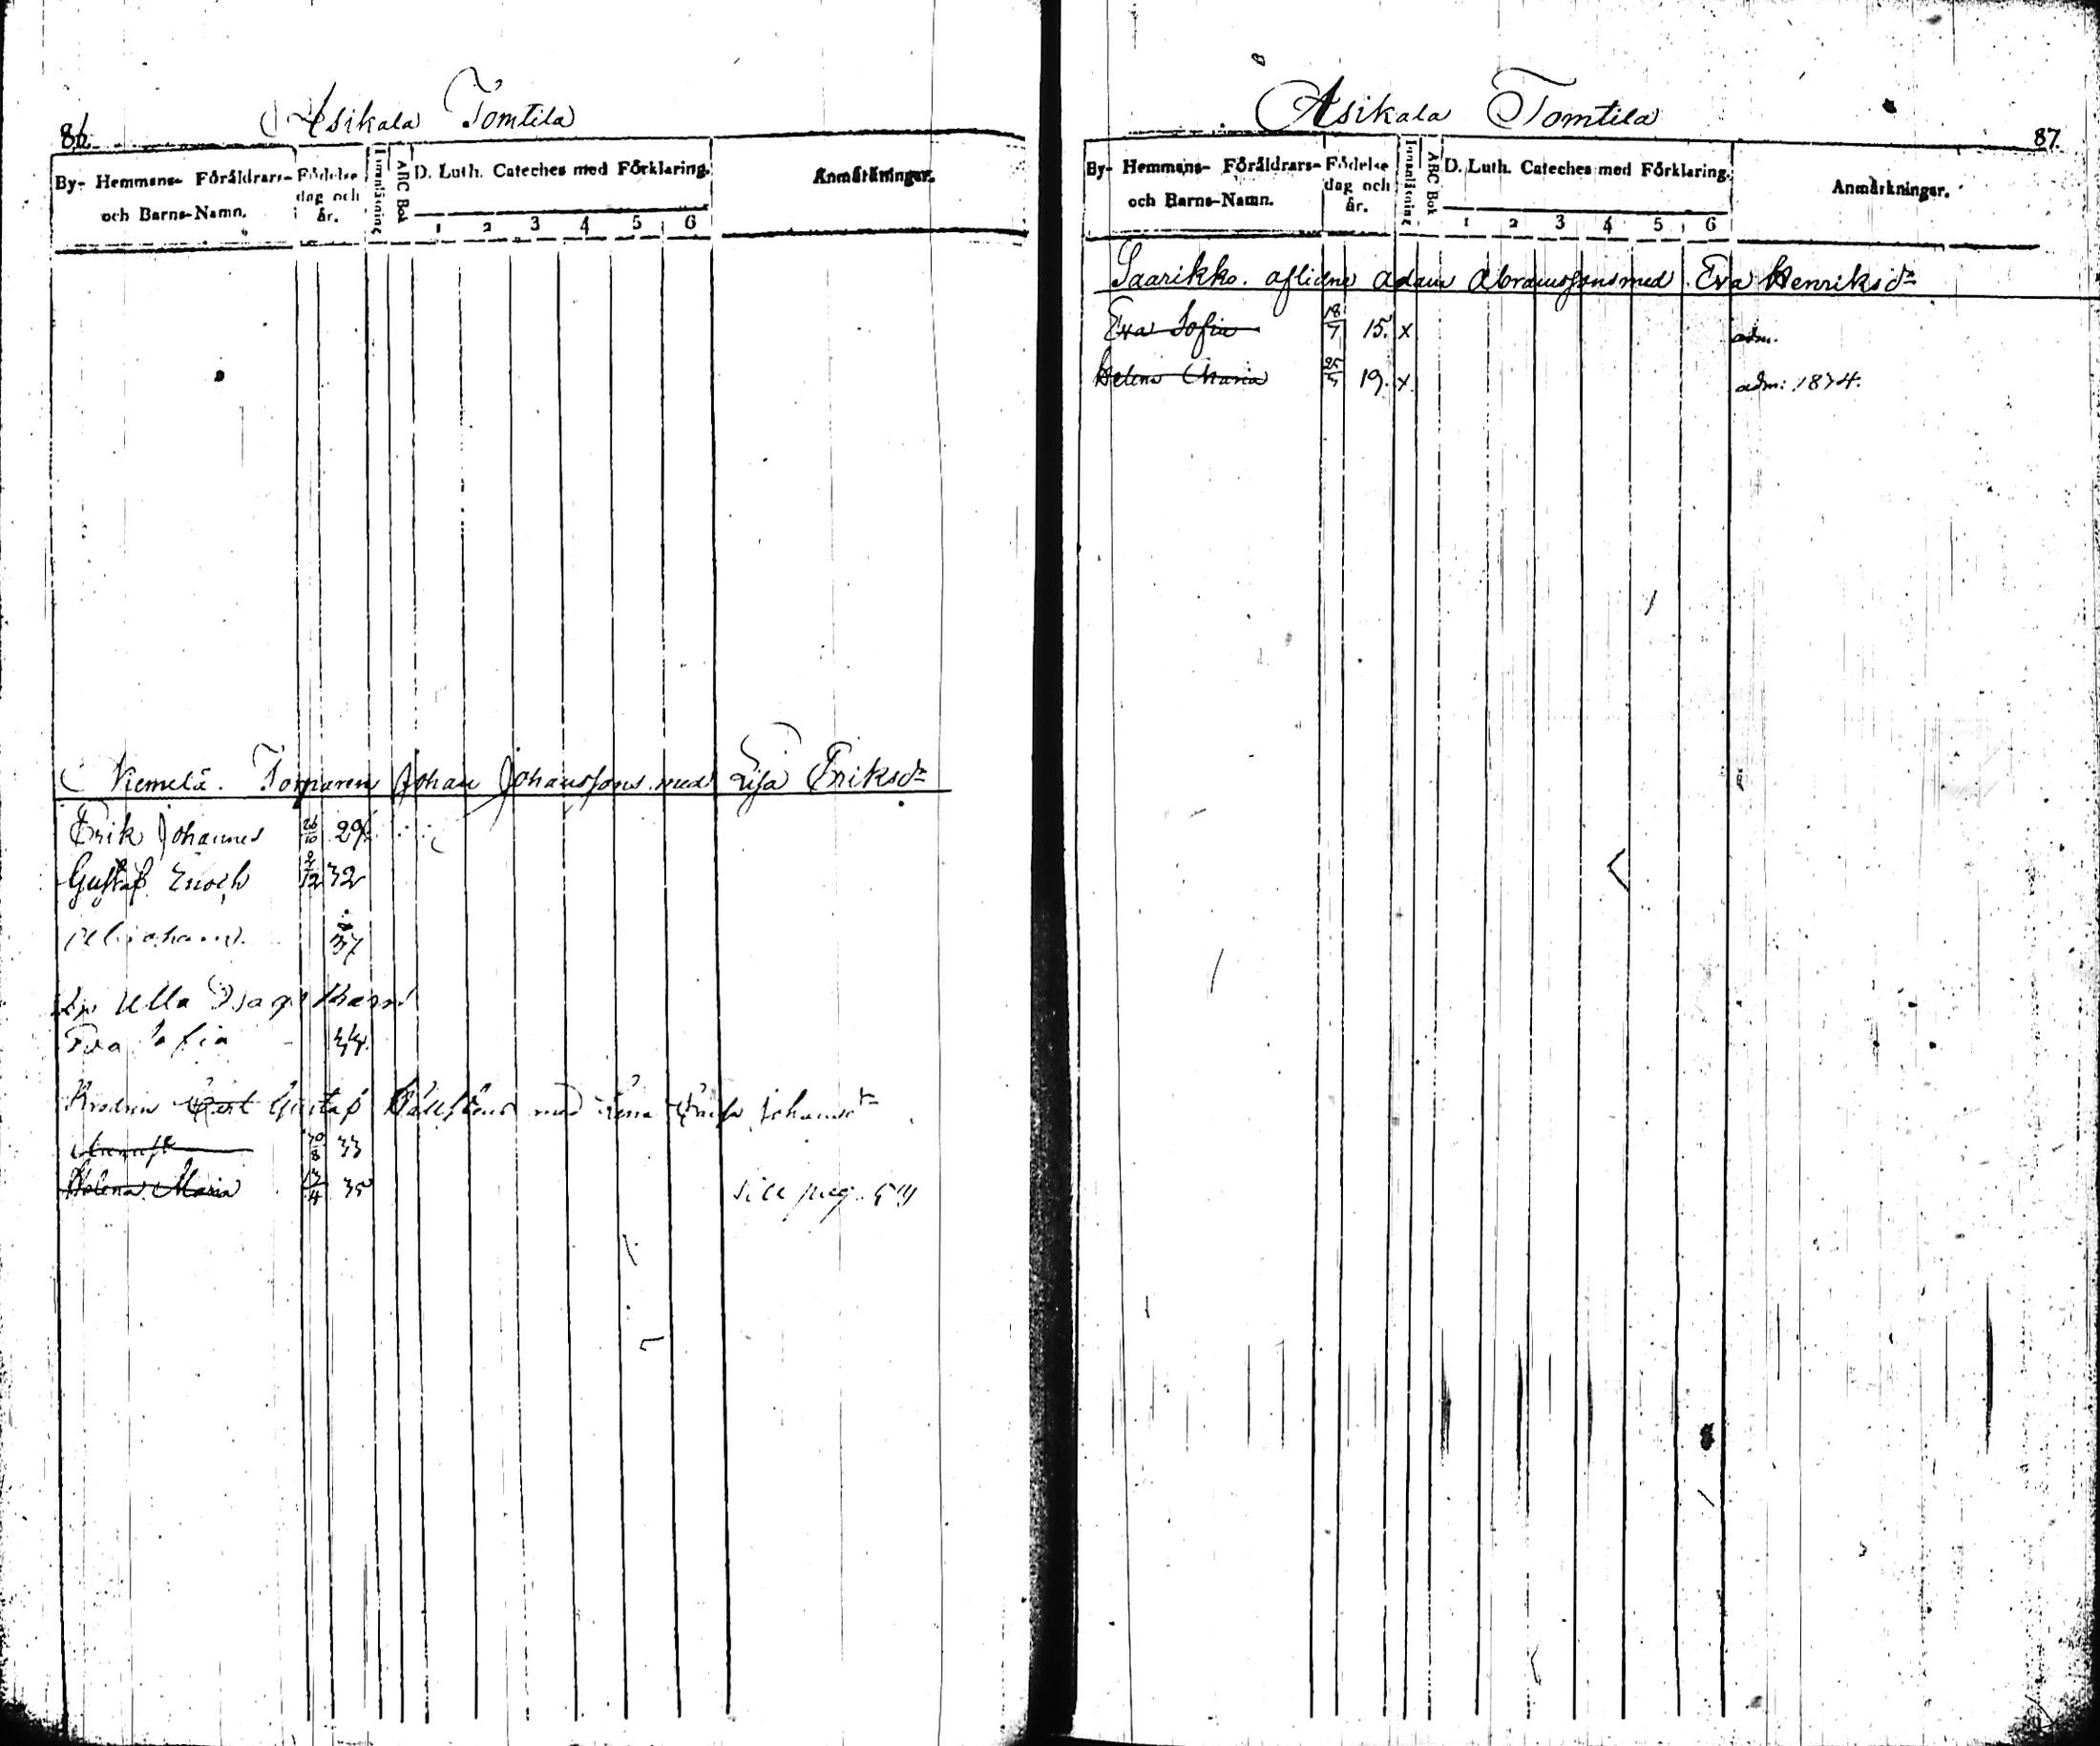 86.
Asikala Tomtila
By- Hemmans- Föräldrars- och Barns-Namn. Födelse dag och år. Innanläsning ABC Bok D. Luth. Cateches med Förklaring. Anmärkningar.
1 2 3 4 5 6
Niemelä. Torparen Johan Johanssons med Lisa Eriksdr
Erik Johannes 26/10 29.
Gustaf Enoch 9/12 32
Abraham 37
Ulla Barn
Eva Sofia 34.
Gustaf med Lena Johansdr
30/8 33
Helena Maria 13/4 35 pag.
87.
Asikala Tomtila
By- Hemmans- Föräldrars- och Barns-Namn. Födelse dag och år. Innanläsning ABC Bok D. Luth. Cateches med Förklaring. Anmärkningar.
1 2 3 4 5 6
Saarikko. aflidne Adam Abramssons med Eva Henriksdr
Eva Sofia 18/7 15. x adm.
Helena Maria 25/5 19. x adm: 1834.